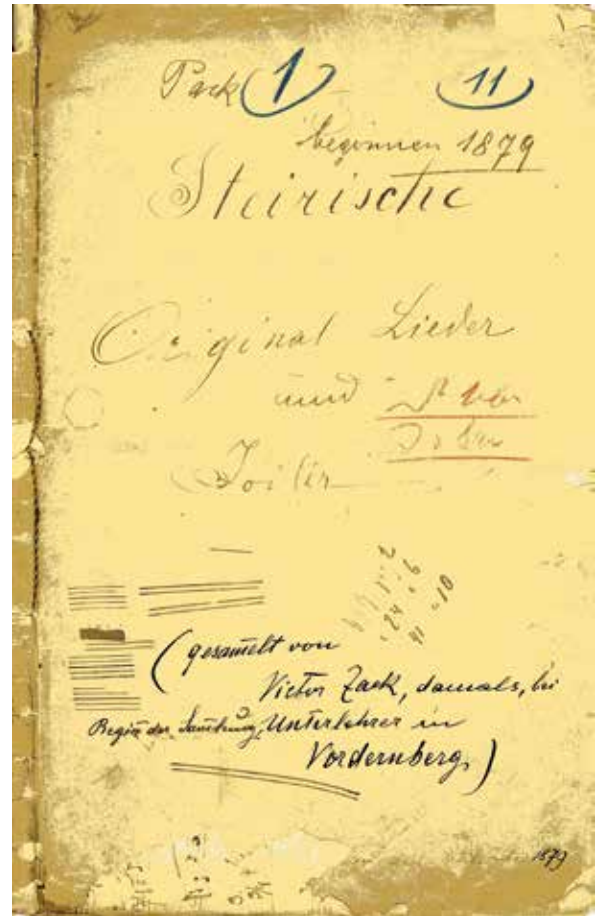 Pack 1 11
beginnen 1879
Steirische
Original Lieder
und
Joiler
(gesam̅elt von
Victor Zack, damals, bei
Begin̅ der Sam̅lung, Unterlehrer in
Vordernberg.)
1879